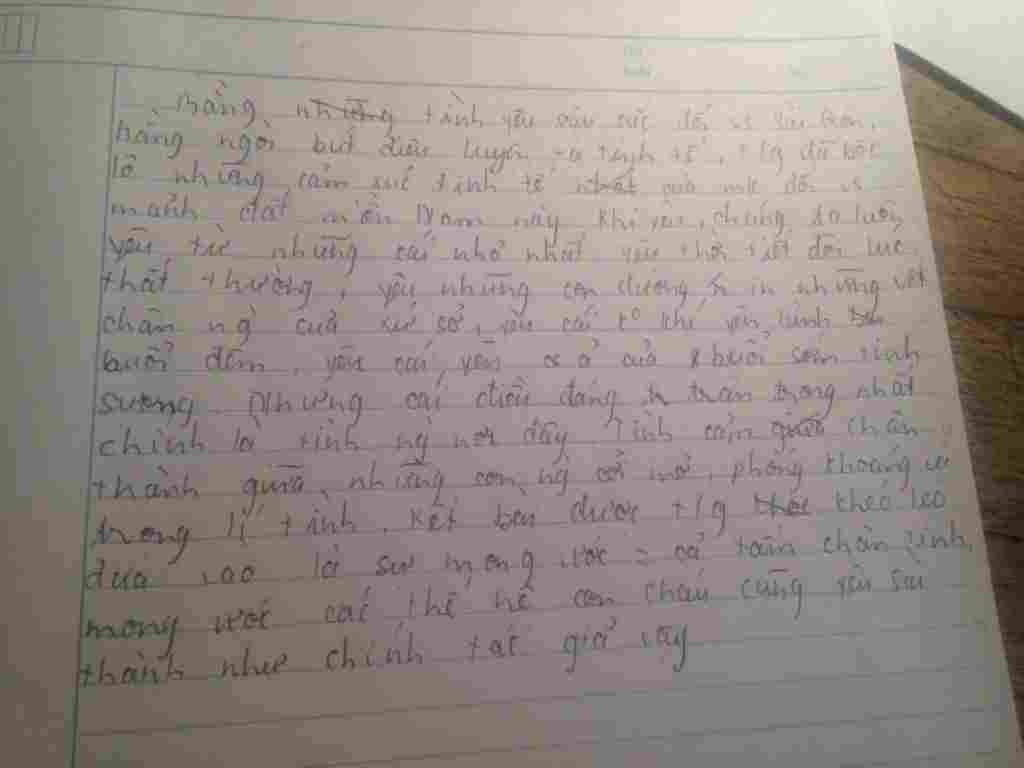 Bằng những tình yêu sâu sắc đối vs Sài Gòn,
bằng ngòi bút điêu luyện và tinh tế, t/g đã bộc
lộ những cảm xúc tinh tế nhất của mk đối vs
mảnh đất miền Nam này. Khi yêu, chúng ta luôn
yêu từ những cái nhỏ nhất yêu thời tiết đôi lúc
thất thường, yêu những con đường in những vết
chân ng của xứ sở, yêu cái k° khí yên bình
buổi đêm, yêu cái yên ả của buổi sớm tinh
sương. Nhưng cái điều đáng trân trọng nhất
chính là tình ng nơi đây. Tình cảm giữa chân
thành giữa những con ng cởi mở, phóng khoáng
trọng lí tình. Kết bài được t/g khéo léo
đưa vào là sự mong ước = cả tấm chân tình,
mong ước các thế hệ con cháu cũng yêu Sài
thành như chính tác giả vậy